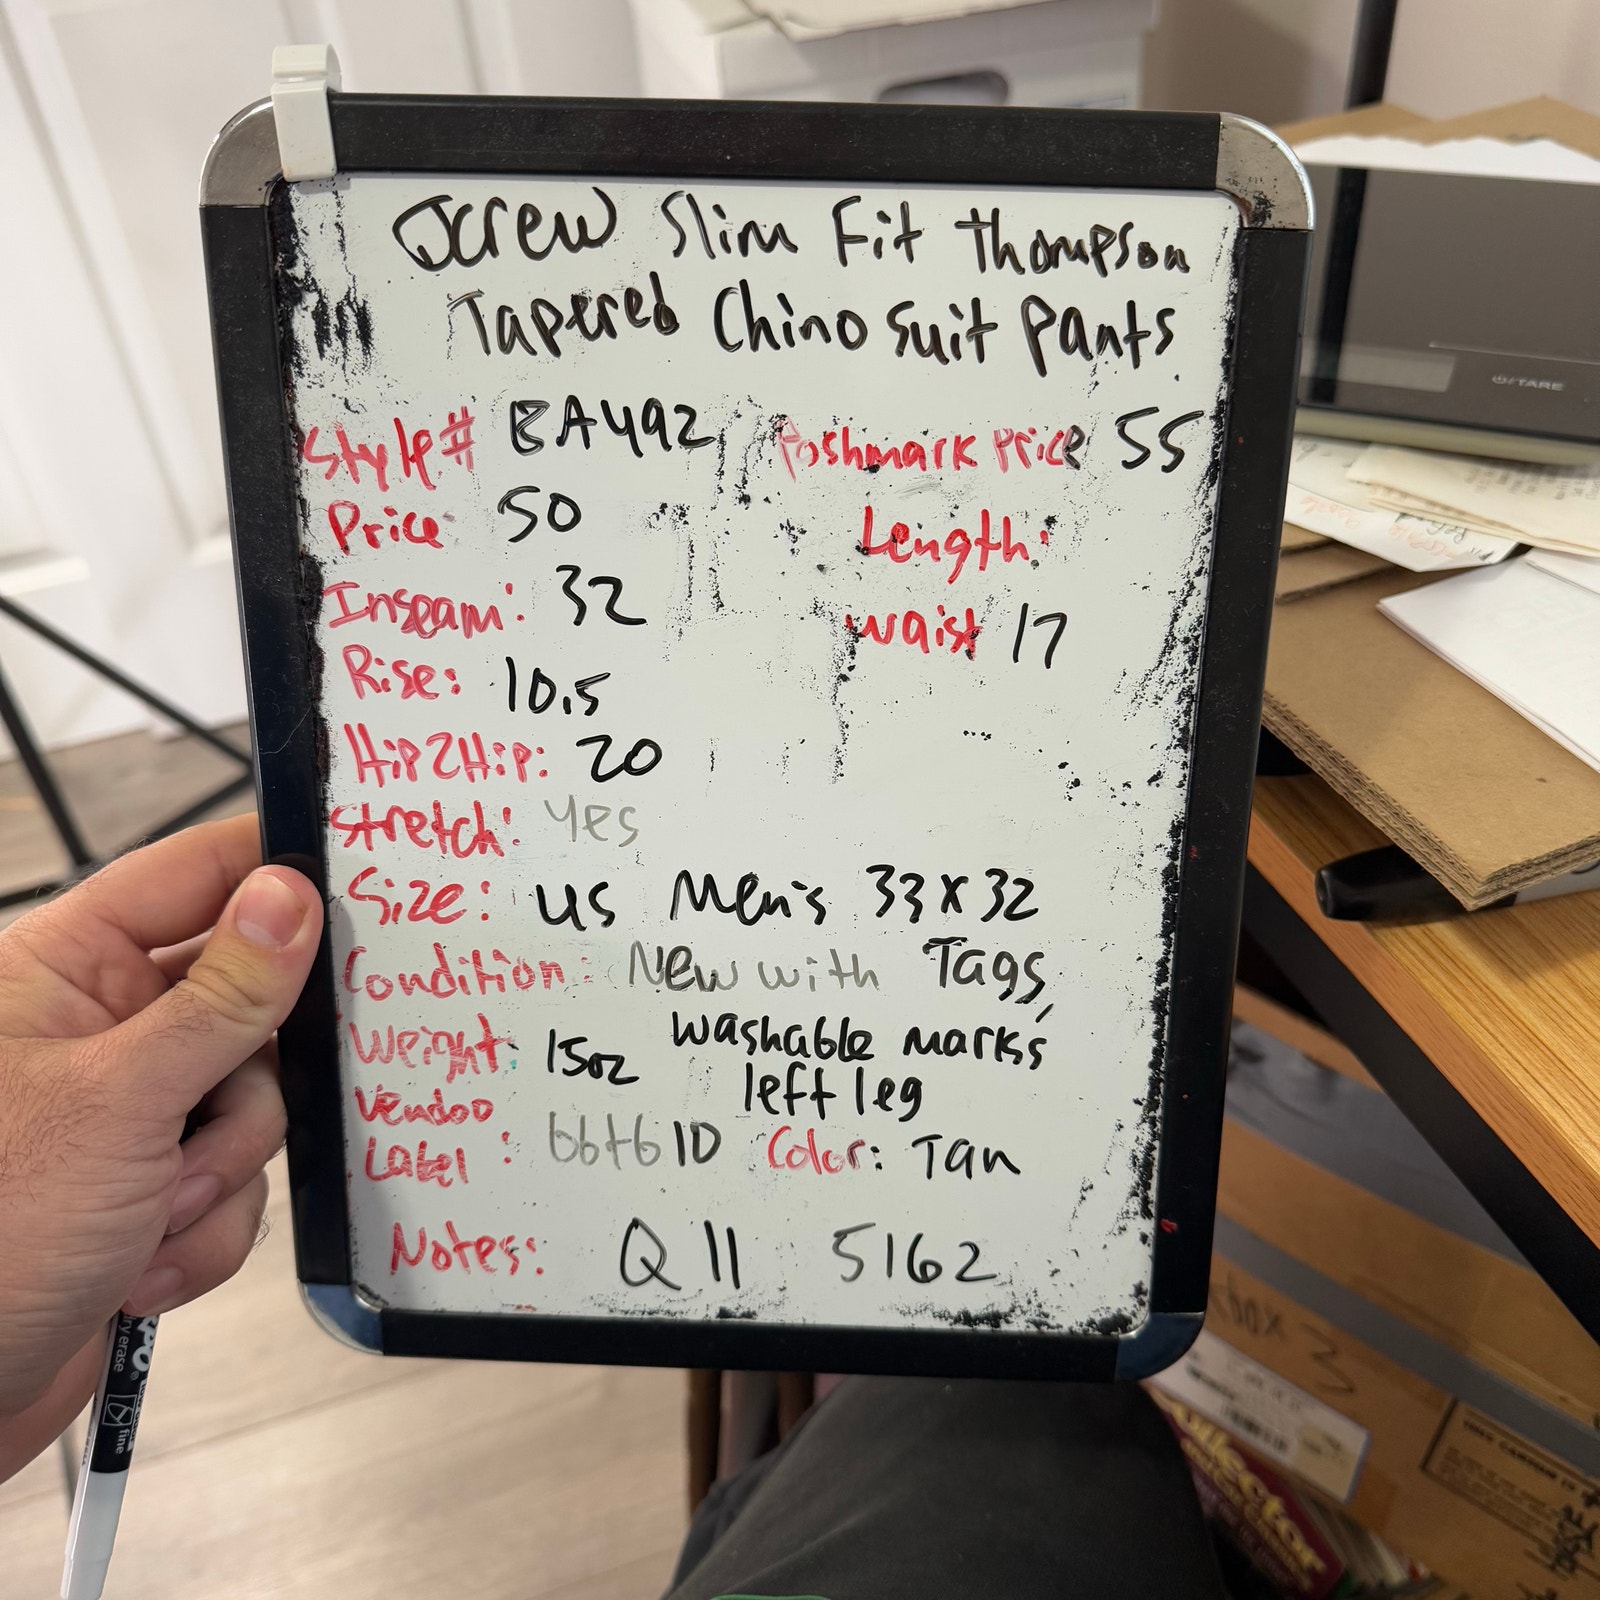 Jcrew Slim Fit Thompson
Tapered Chino Suit Pants
Style# BA492 Poshmark Price 55
Price 50 Length:
Inseam: 32 waist 17
Rise: 10.5
Hip2Hip: 20
Stretch: Yes
Size: US Men's 33x32
Condition: New with Tags,
washable marks
left leg
Weight: 15oz
Vendoo
Label : bbtb10 Color: Tan
Notes: Q11 5162
⏻/TARE
dry erase
fine
box 3